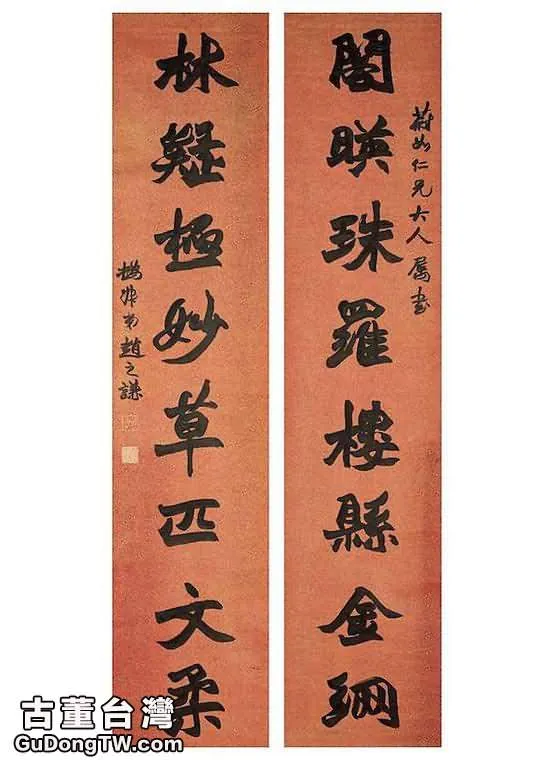 蔚如仁兄大人屬書
閣暎珠羅樓縣金網
林疑極妙草匹文柔
撝叔弟趙之謙
古董台灣
GuDongTW.com